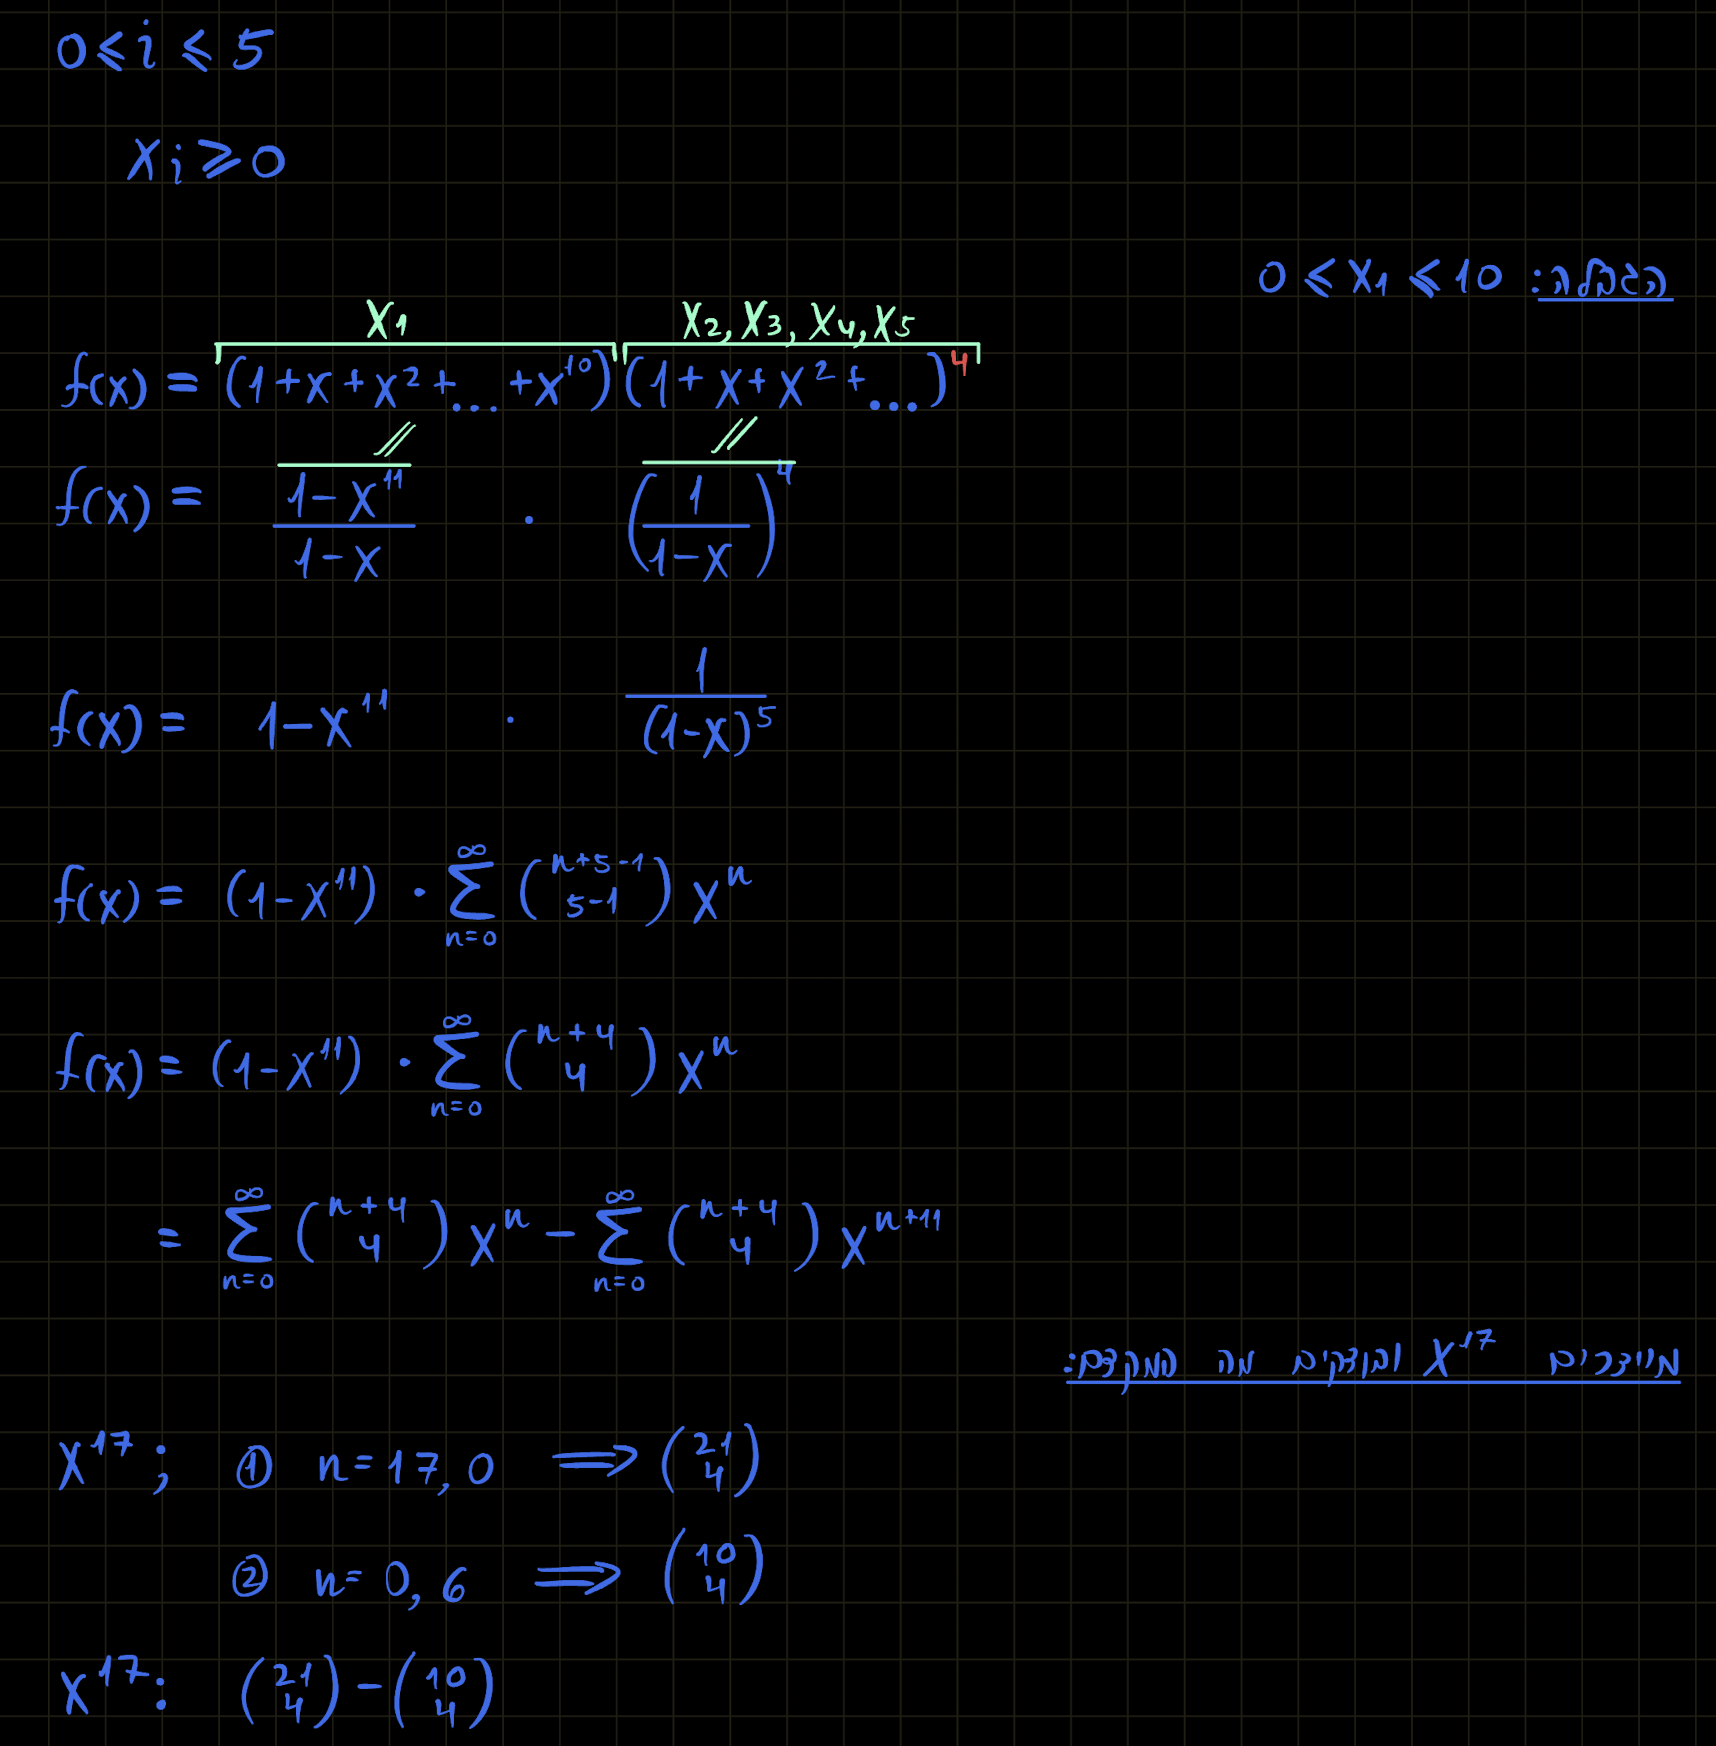 0 ≤ i ≤ 5
Xi ≥ 0
הגבלה: 0 ≤ X₁ ≤ 10
X₁ X₂, X₃, X₄, X₅
f(x) = (1+x+x²+... +x¹⁰)(1+x+x²+...)⁴
f(x) = (1-x¹¹)/(1-x) · (1/(1-x))⁴
f(x) = 1-x¹¹ · 1/(1-x)⁵
f(x) = (1-x¹¹) · ∑_{n=0}^{∞} (n+5-1 / 5-1) xⁿ
f(x) = (1-x¹¹) · ∑_{n=0}^{∞} (n+4 / 4) xⁿ
= ∑_{n=0}^{∞} (n+4 / 4) xⁿ - ∑_{n=0}^{∞} (n+4 / 4) xⁿ⁺¹¹
מייצרים X¹⁷ ובודקים מה המקדם:
X¹⁷; ① n=17,0 ⟹ (21 / 4)
② n=0,6 ⟹ (10 / 4)
X¹⁷: (21 / 4) - (10 / 4)